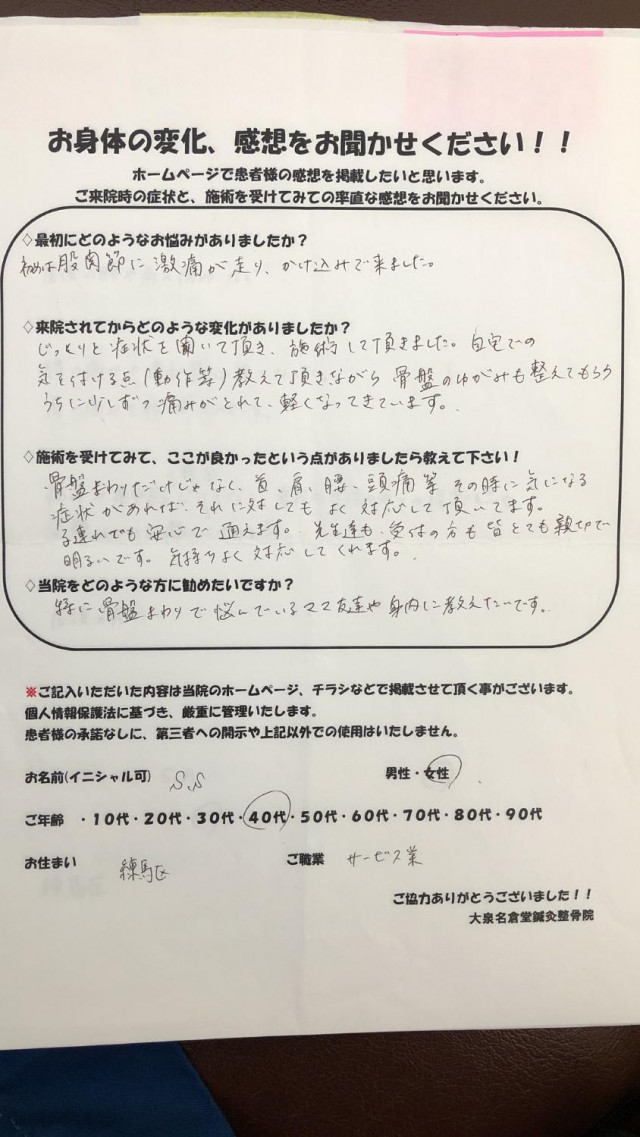 お身体の変化、感想をお聞かせください！！
ホームページで患者様の感想を掲載したいと思います。
ご来院時の症状と、施術を受けてみての率直な感想をお聞かせください。
◇最初にどのようなお悩みがありましたか？
初めは股関節に激痛が走り、かけ込みで来ました。
◇来院されてからどのような変化がありましたか？
じっくりと症状を聞いて頂き、施術して頂きました。自宅での
気を付ける点(動作等)教えて頂きながら骨盤のゆがみも整えてもらう
うちに少しずつ痛みがとれて、軽くなってきています。
◇施術を受けてみて、ここが良かったという点がありましたら教えて下さい！
骨盤まわりだけじゃなく、首、肩、腰、頭痛等その時に気になる
症状があれば、それに対してもよく対応して頂いてます。
子連れでも安心で通えます。先生達も、受付の方も皆とても親切で
明るいです。気持ちよく対応してくれます。
◇当院をどのような方に勧めたいですか？
特に骨盤まわりで悩んでいるママ友達や身内に教えたいです。
※ご記入いただいた内容は当院のホームページ、チラシなどで掲載させて頂く事がございます。
個人情報保護法に基づき、厳重に管理いたします。
患者様の承諾なしに、第三者への開示や上記以外での使用はいたしません。
お名前(イニシャル可) S.S 男性・女性
ご年齢 ・10代・20代・30代・40代・50代・60代・70代・80代・90代
お住まい 練馬区 ご職業 サービス業
ご協力ありがとうございました！！
大泉名倉堂鍼灸整骨院